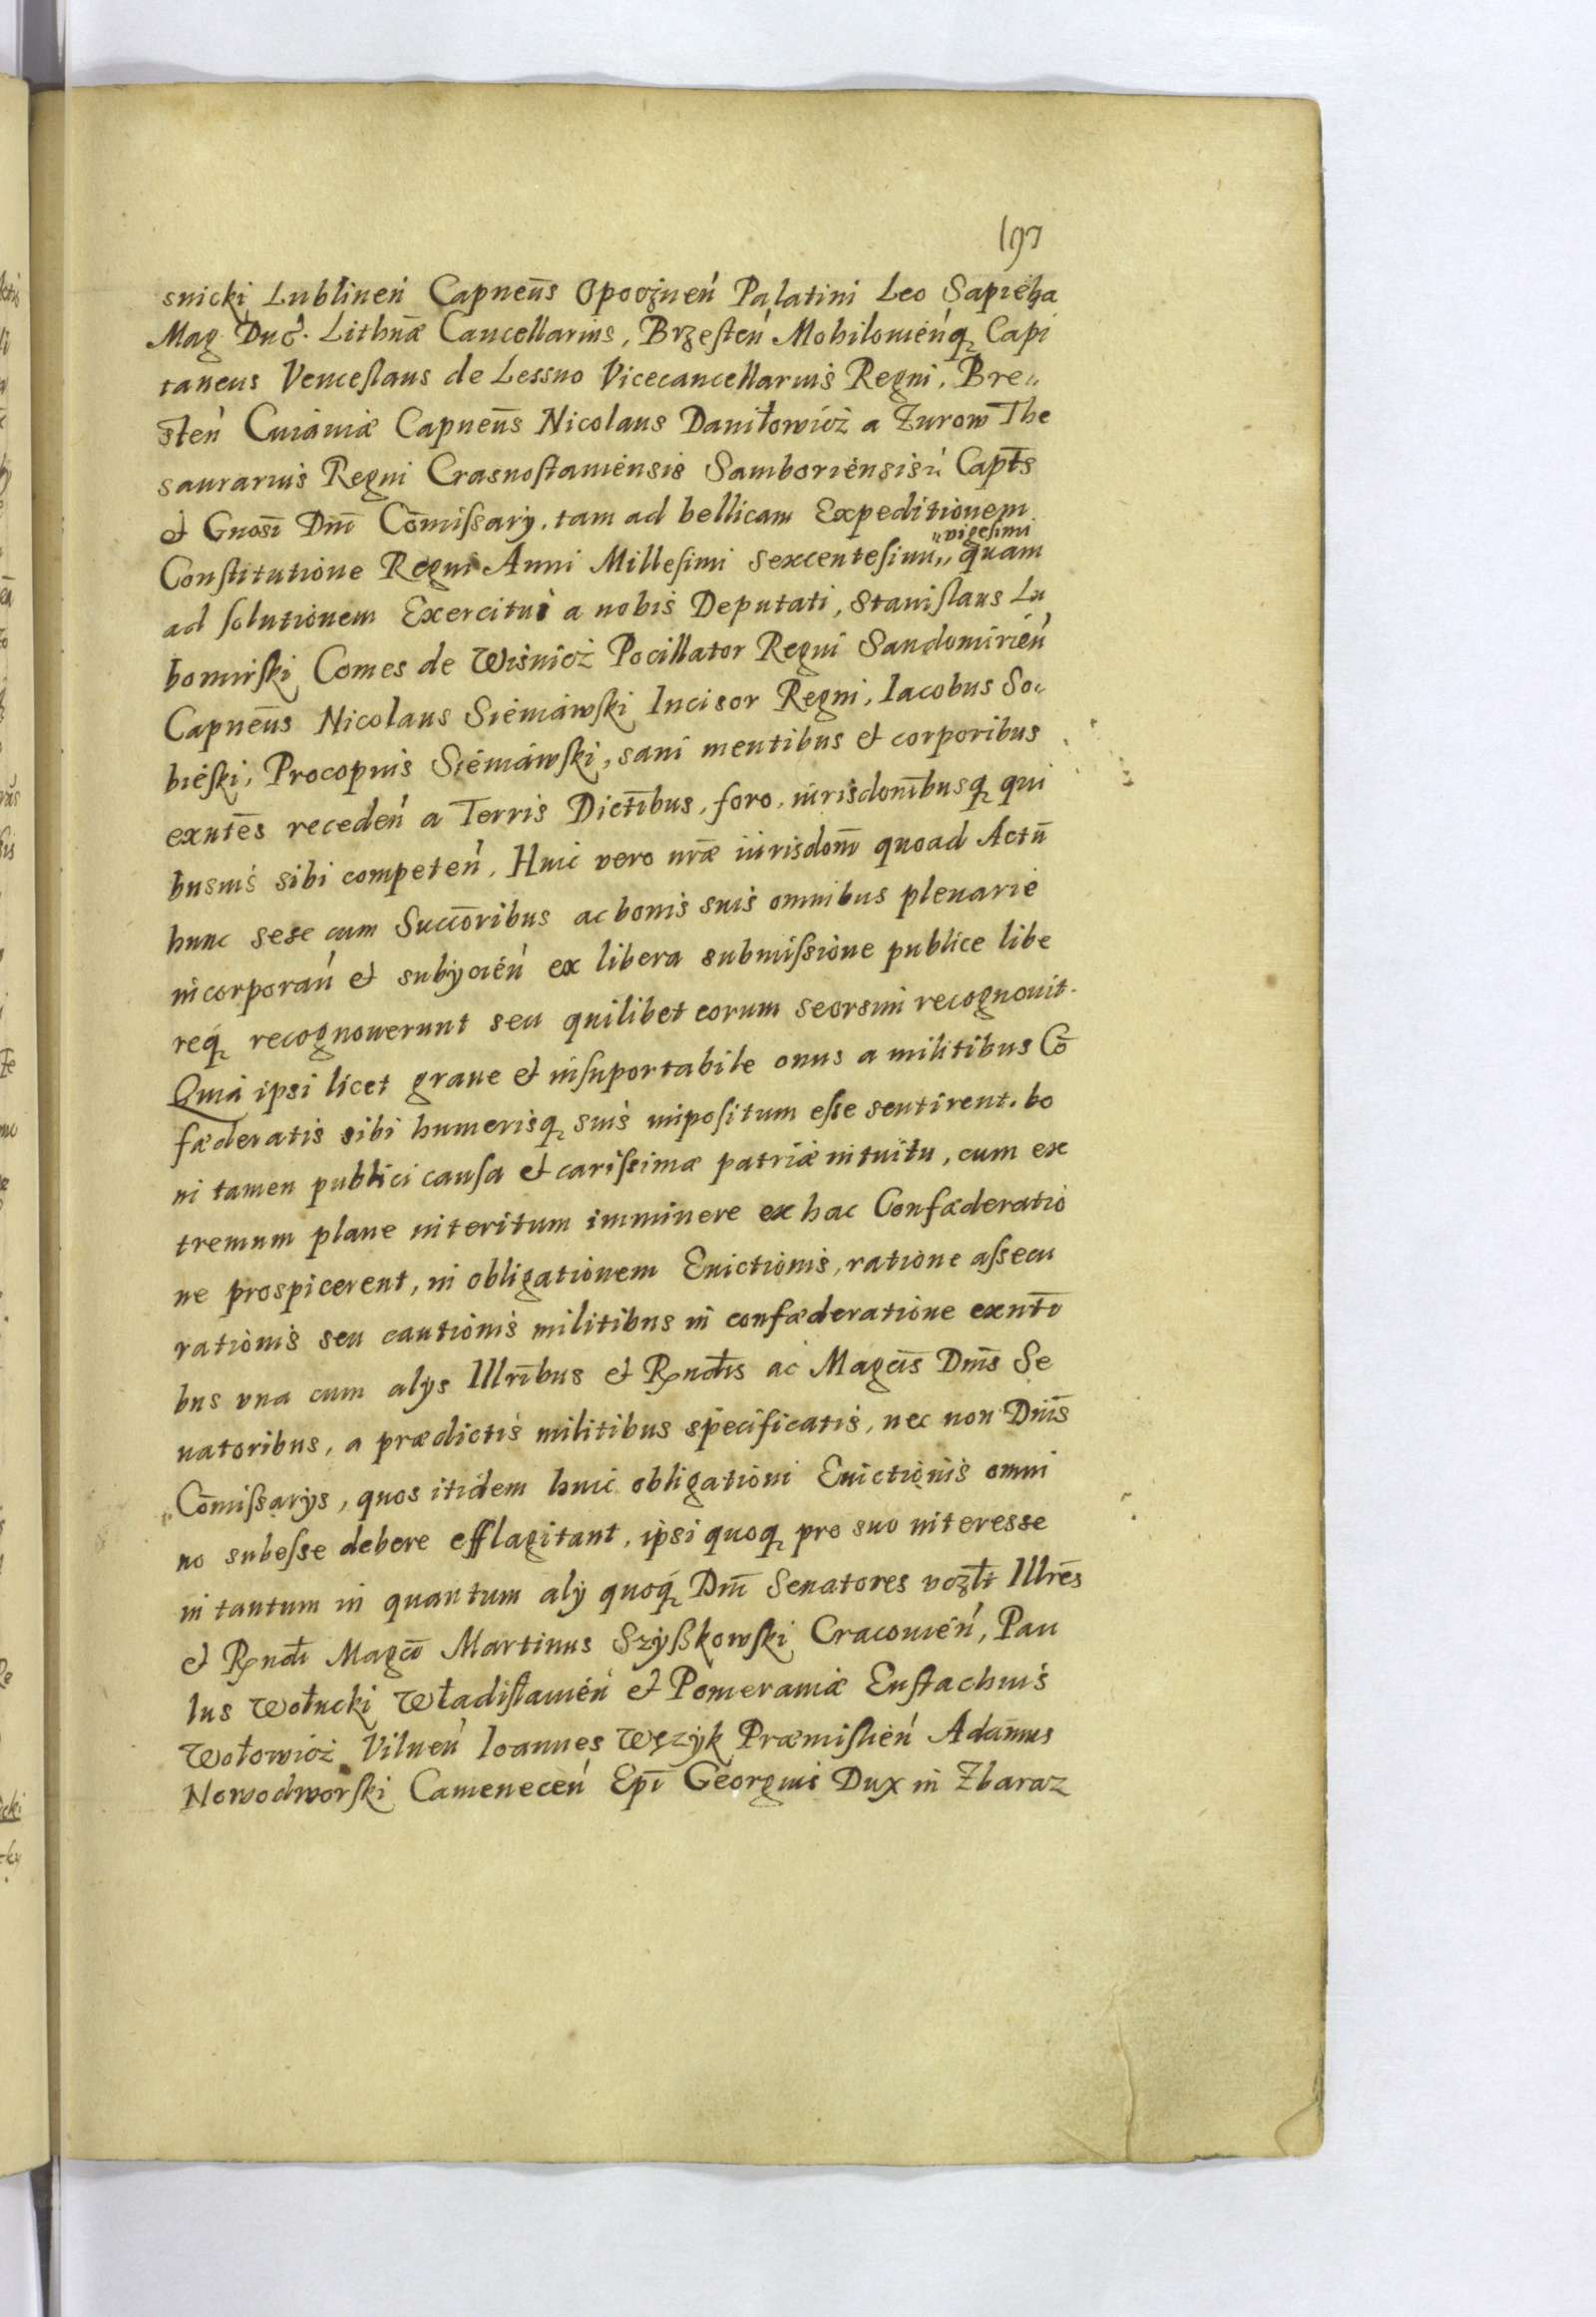 197
snicki Lublineń Capneūs Opoczneń Palatini Leo Sapieha
Mag Duć. Lithnæ Cancellarius, Brzesteń Mohilouieńq Capi
taneus Venceslaus de Lessno Vicecancellarius Regni, Bre„
steń Cuiauiæ Capneūs Nicolaus Daniłowicż a Żurow The
saurarius Regni Crasnostauiensis Samboriensisń Capt̄s
et Gnosī Dnī Cōmissarij, tam ad bellicam Expeditionem
vigesimi
Constitutione Regni Anni Millesimi Sexcentesimi„ quam
ad solutionem Exercitui a nobis Deputati, Stanislaus Lu
bomirski Comes de Wisnicż Pocillator Regni Sandomirień
Capneūs Nicolaus Sieniáwski Incisor Regni, Iacobus So„
bieski, Procopius Sieniáwski, sani mentibus et corporibus
exntēs recedeń a Terris Dictībus, foro, iurisdonībusq qui
busuis sibi competeń, Huic vero nrāe iurisdonī quoad Actū
hunc sese cum Succōribus ac bonis suis omnibus plenarie
incorporań et subijcień ex libera submissione publice libe
req recognouerunt seu quilibet eorum seorsim recognouit.
Quia ipsi licet graue et insuportabile onus a militibus Cō
fæderatis sibi humerisq suis impositum esse sentirent. bo
ni tamen publici causa et carissimæ patriæ intuitu, cum ex
tremum plane interitum imminere ex hac Confæderatio
ne prospicerent, in obligationem Euictionis, ratione assecu
rationis seu cautionis militibus in confæderatione exntī
bus vna cum alijs Illrībus et Rndīs ac Magcīs Dnīs Se
natoribus, a prædictis militibus specificatis, nec non Dnīs
Cōmissarijs, quos itidem huic obligationi Euictionis omni
no subesse debere efflagitant, ipsi quoq pro suo interesse
in tantum in quantum alij quoq Dnī Senatores vczlt Illrēs
et Rndī Magcī Martinus Szyßkowski Cracouień, Pau
lus Wołucki Władislauień et Pomeraniæ Eustachius
Wołowicż Vilneń Ioannes Wężyk Præmislień Adamus
Nowodworski Cameneceń Epī Georgius Dux in Zbaraz